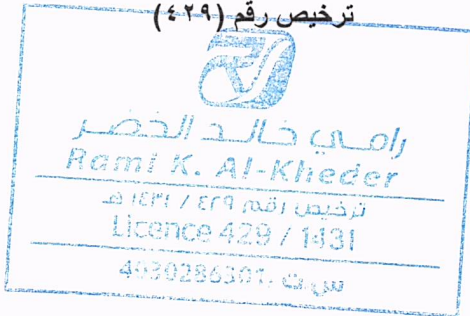 ترخيص رقم (٤٢٩)
رامي خالد الخضر
Rami K. Al-Kheder
ترخيص رقم ٤٢٩ / ١٤٣١ هـ
Licence 429 / 1431
س.ت. 4030286301